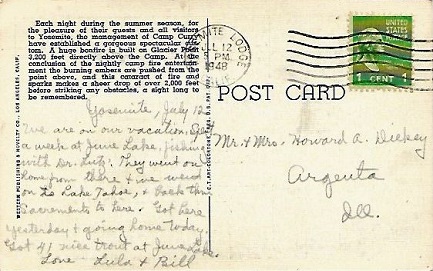 Each night during the summer season, for
the pleasure of their guests and all visitors
to Yosemite, the management of Camp Curry
have established a gorgeous spectacular effect.
A huge bonfire is built on Glacier Point
3,200 feet directly above the Camp. At the
conclusion of the nightly camp fire entertainment
the burning embers are pushed from the
point above, and this cataract of fire and
sparks makes a sheer drop of over 2,000 feet
before striking any obstacles, a sight long
to be remembered.
Yosemite, July 12
We are on our vacation. Spent
a week at June Lake, fishing
with Dr. Lutz. They went on
home from there & we went
on to Lake Tahoe, & back thru
Sacramento to here. Got here
yesterday & going home today.
Got 41 nice trout at June Lake.
Love - Lula & Bill
WESTERN PUBLISHING & NOVELTY CO., LOS ANGELES, CALIF.
LODGE
JUL 12
PM
1948
POST CARD
UNITED
STATES
1 CENT 1
Mr. & Mrs. Howard A. Dickey
Argenta
Ill.